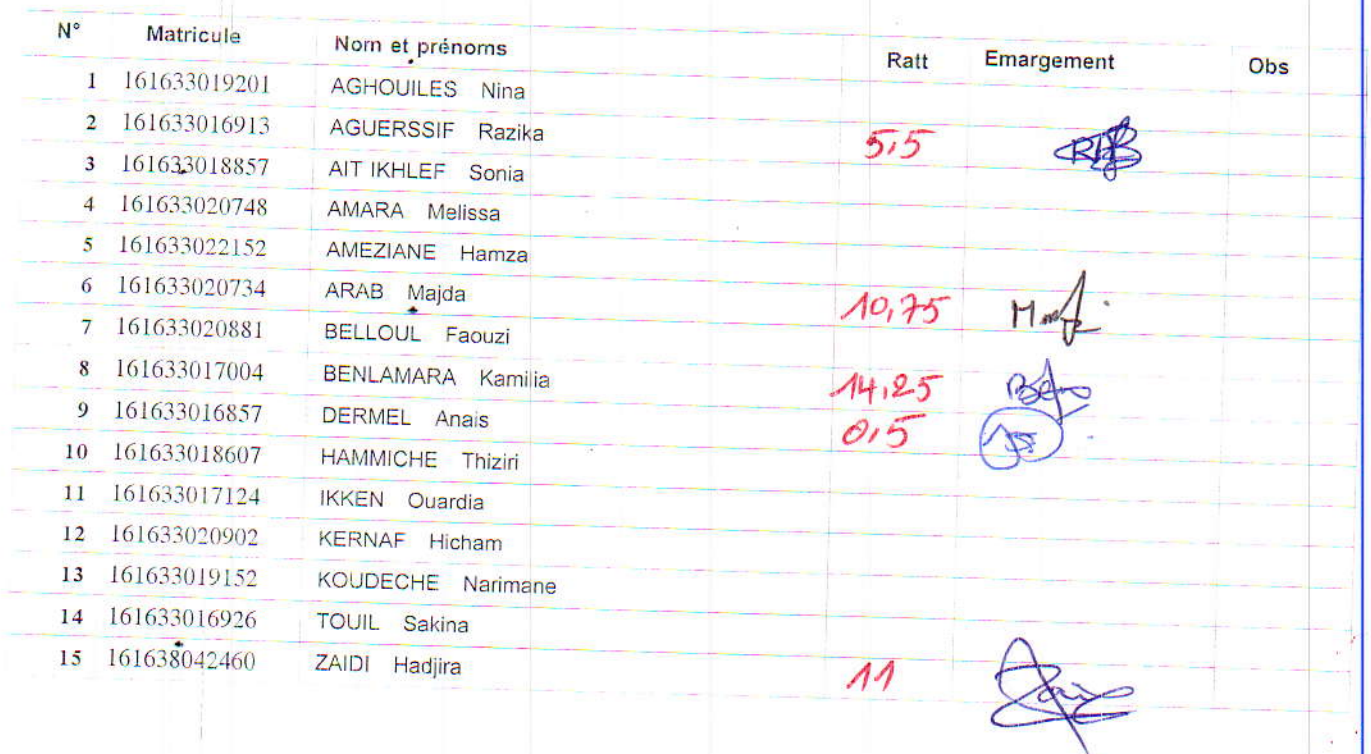 N° Matricule Nom et prénoms Ratt Emargement Obs
1 161633019201 AGHOUILES Nina
2 161633016913 AGUERSSIF Razika 5,5
3 161633018857 AIT IKHLEF Sonia
4 161633020748 AMARA Melissa
5 161633022152 AMEZIANE Hamza
6 161633020734 ARAB Majda 10,75
7 161633020881 BELLOUL Faouzi
8 161633017004 BENLAMARA Kamilia 14,25
9 161633016857 DERMEL Anais 0,5
10 161633018607 HAMMICHE Thiziri
11 161633017124 IKKEN Ouardia
12 161633020902 KERNAF Hicham
13 161633019152 KOUDECHE Narimane
14 161633016926 TOUIL Sakina
15 161638042460 ZAIDI Hadjira 11